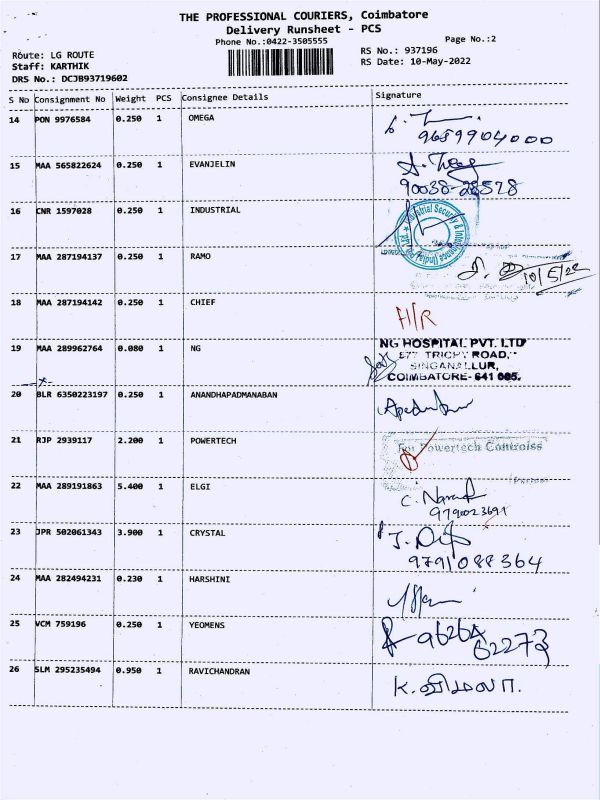 THE PROFESSIONAL COURIERS, Coimbatore
Delivery Runsheet - PCS
Phone No.:0422-3505555
Page No.:2
Route: LG ROUTE
RS No.: 937196
Staff: KARTHIK
RS Date: 10-May-2022
DRS No.: DCJB93719602
S No Consignment No Weight PCS Consignee Details Signature
14 PON 9976584 0.250 1 OMEGA
9659904000
15 MAA 565822624 0.250 1 EVANJELIN
90038-28578
16 CNR 1597028 0.250 1 INDUSTRIAL
Industrial Security & Intelligence (India) Pvt Ltd
17 MAA 287194137 0.250 1 RAMO
10/5/22
18 MAA 287194142 0.250 1 CHIEF
H/R
19 MAA 289962764 0.080 1 NG
NG HOSPITAL PVT. LTD
577 TRICHY ROAD,
SINGANALLUR,
COIMBATORE- 641 005.
20 BLR 6350223197 0.250 1 ANANDHAPADMANABAN
21 RJP 2939117 2.200 1 POWERTECH
For Powertech Controlss
22 MAA 289191863 5.400 1 ELGI
C.
23 JPR 502061343 3.900 1 CRYSTAL
9791088364
24 MAA 282494231 0.230 1 HARSHINI
25 VCM 759196 0.250 1 YEOMENS
96264
62273
26 SLM 295235494 0.950 1 RAVICHANDRAN
K. விமலா.